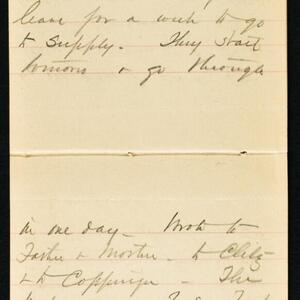 leave for a week to go
to Supply. They start
tomorrow & go through
in one day - Wrote to
Father & Mother - to Clitz
& to Coppinger - The